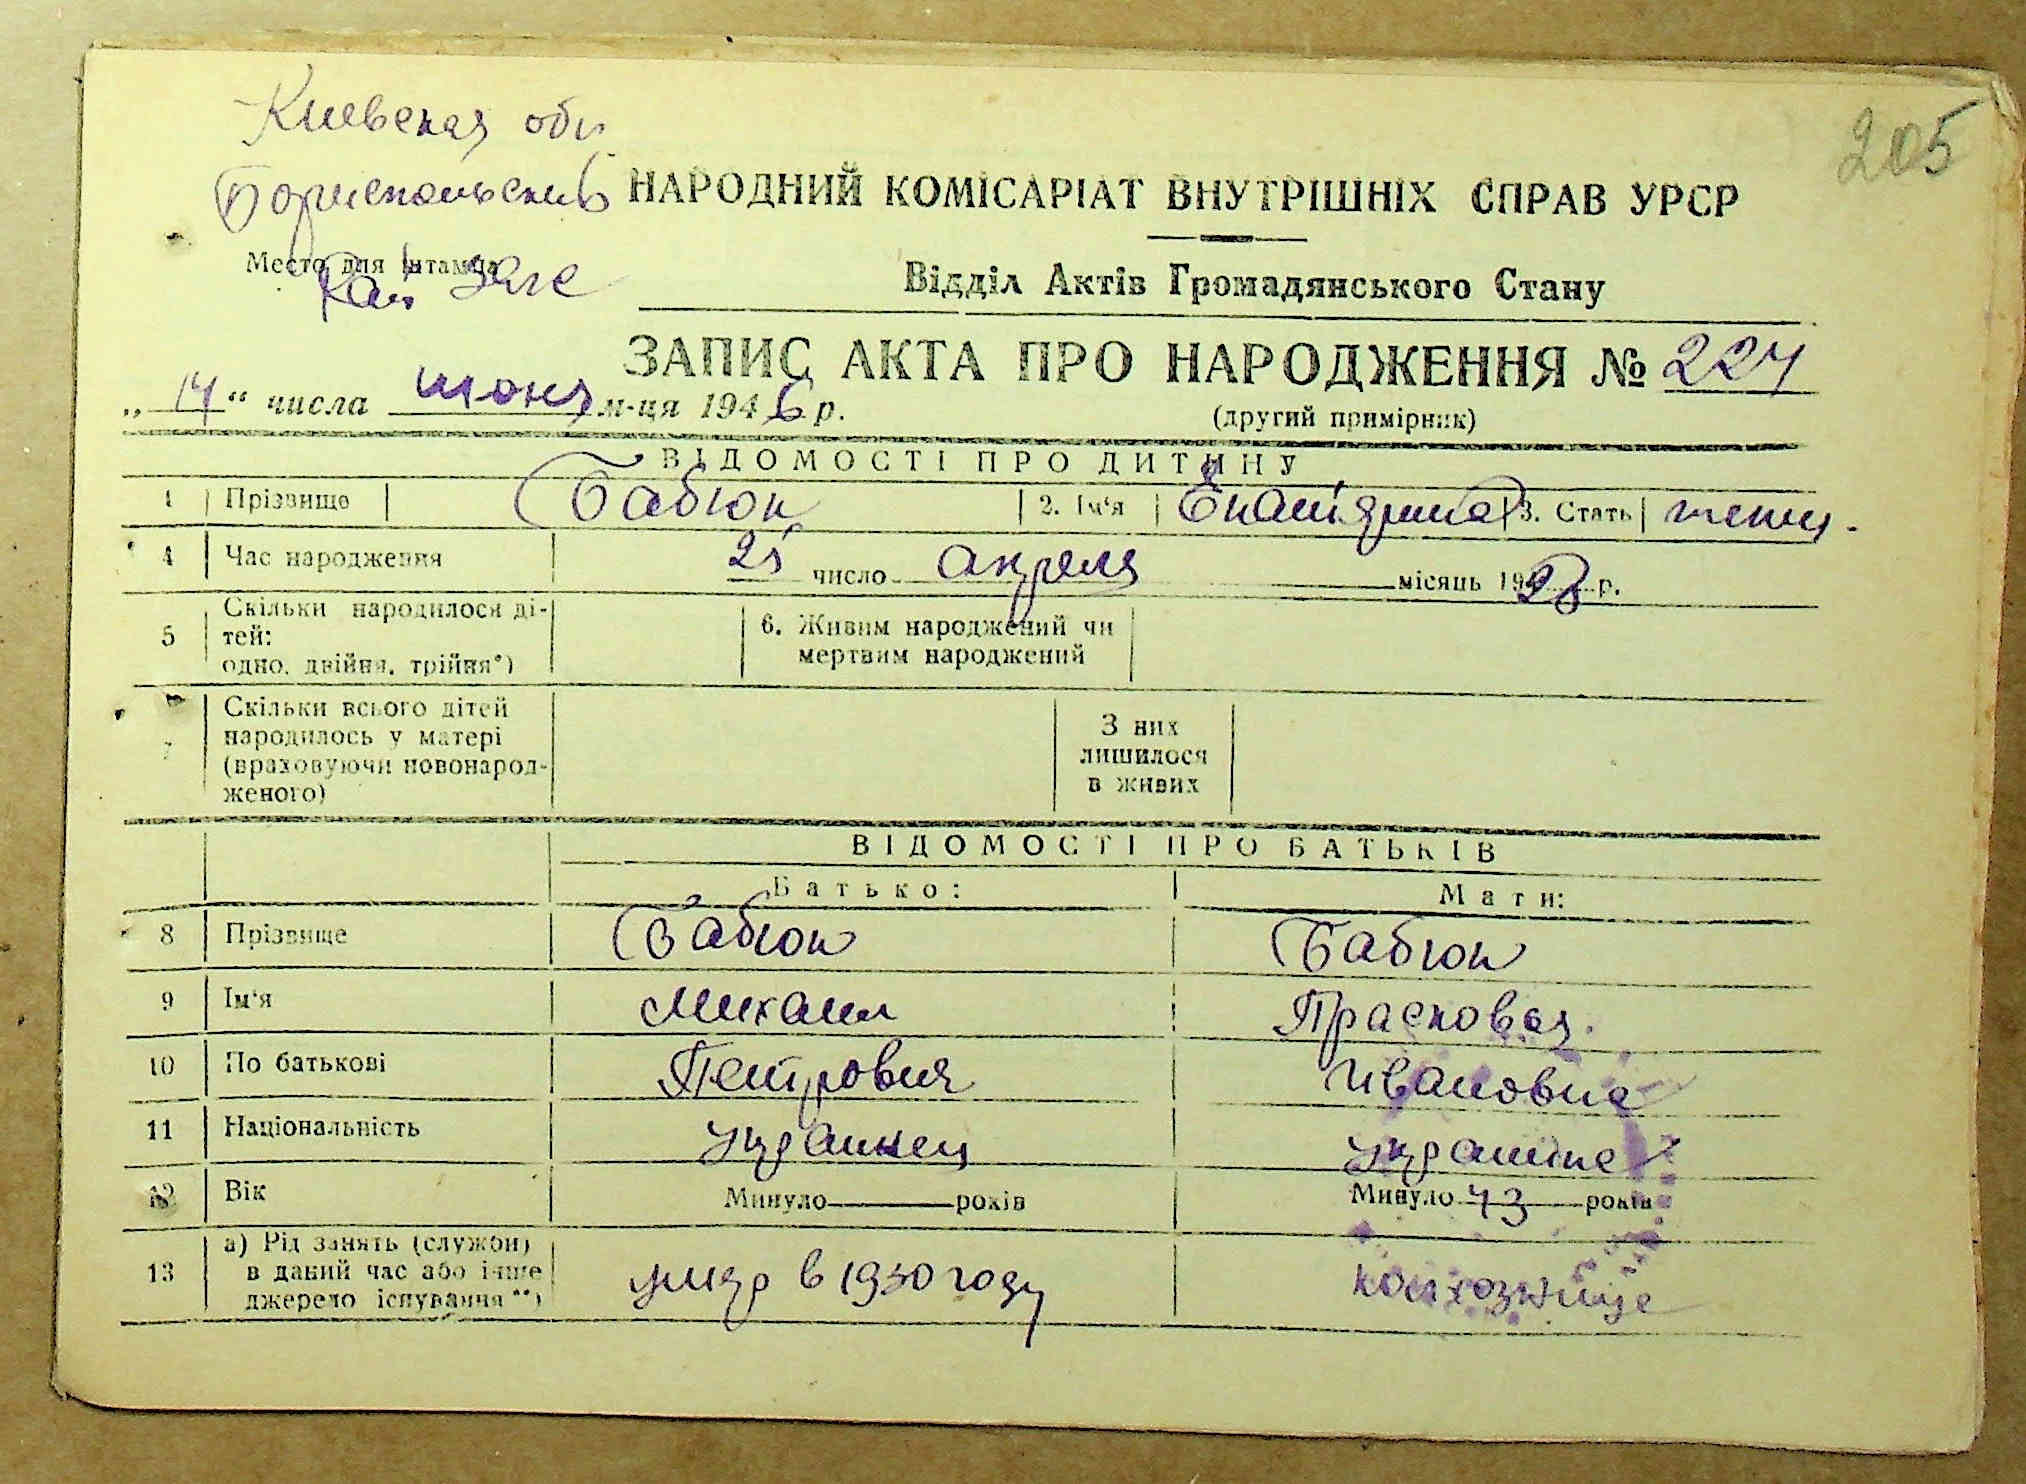 Киевская обл
205
Бориспольский
НАРОДНИЙ КОМІСАРІАТ ВНУТРІШНІХ СПРАВ УРСР
Место для штампа
Рай загс
Відділ Актів Громадянського Стану
ЗАПИС АКТА ПРО НАРОДЖЕННЯ № 224
„14“ числа июня м-ця 1946 р.
(другий примірник)
ВІДОМОСТІ ПРО ДИТИНУ
1 Прізвище Бабюк 2. Ім'я Екатерина 3. Стать женщ.
4 Час народження 25 число апреля місяць 1928 р.
5 Скільки народилося ді-
тей:
одно, двійня, трійня*)
6. Живим народжений чи
мертвим народжений
7 Скільки всього дітей
народилось у матері
(враховуючи новонарод-
женого)
З них
лишилося
в живих
ВІДОМОСТІ ПРО БАТЬКІВ
Батько: Мати:
8 Прізвище Бабюк Бабюк
9 Ім'я Михаил Прасковья.
10 По батькові Петрович Ивановна
11 Національність украинец украинка
12 Вік Минуло років Минуло 43 років
13 а) Рід занять (служби)
в даний час або інше
джерело існування**)
умер в 1930 году колхозница